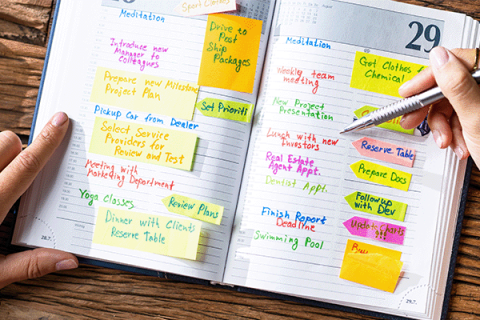 Sport Center
Meditation
Drive to
Post
Ship
Packages
Introduce new
Manager to
Colleagues
Prepare new Milestone
Project Plan
Set Priority
Pickup Car from Dealer
Select Service
Providers for
Review and Test
Meeting with
Marketing Department
Yoga Classes
Review Plans
Dinner with Clients
Reserve Table
29
Meditation
Get Clothes
Chemical
Weekly team
meeting
New Project
Presentation
Lunch with new
Investors
Reserve Table
Real Estate
Agent Appt.
Prepare Docs
Dentist Appt.
Followup
with Dev
Finish Report
Deadline
Update Charts
Swimming Pool